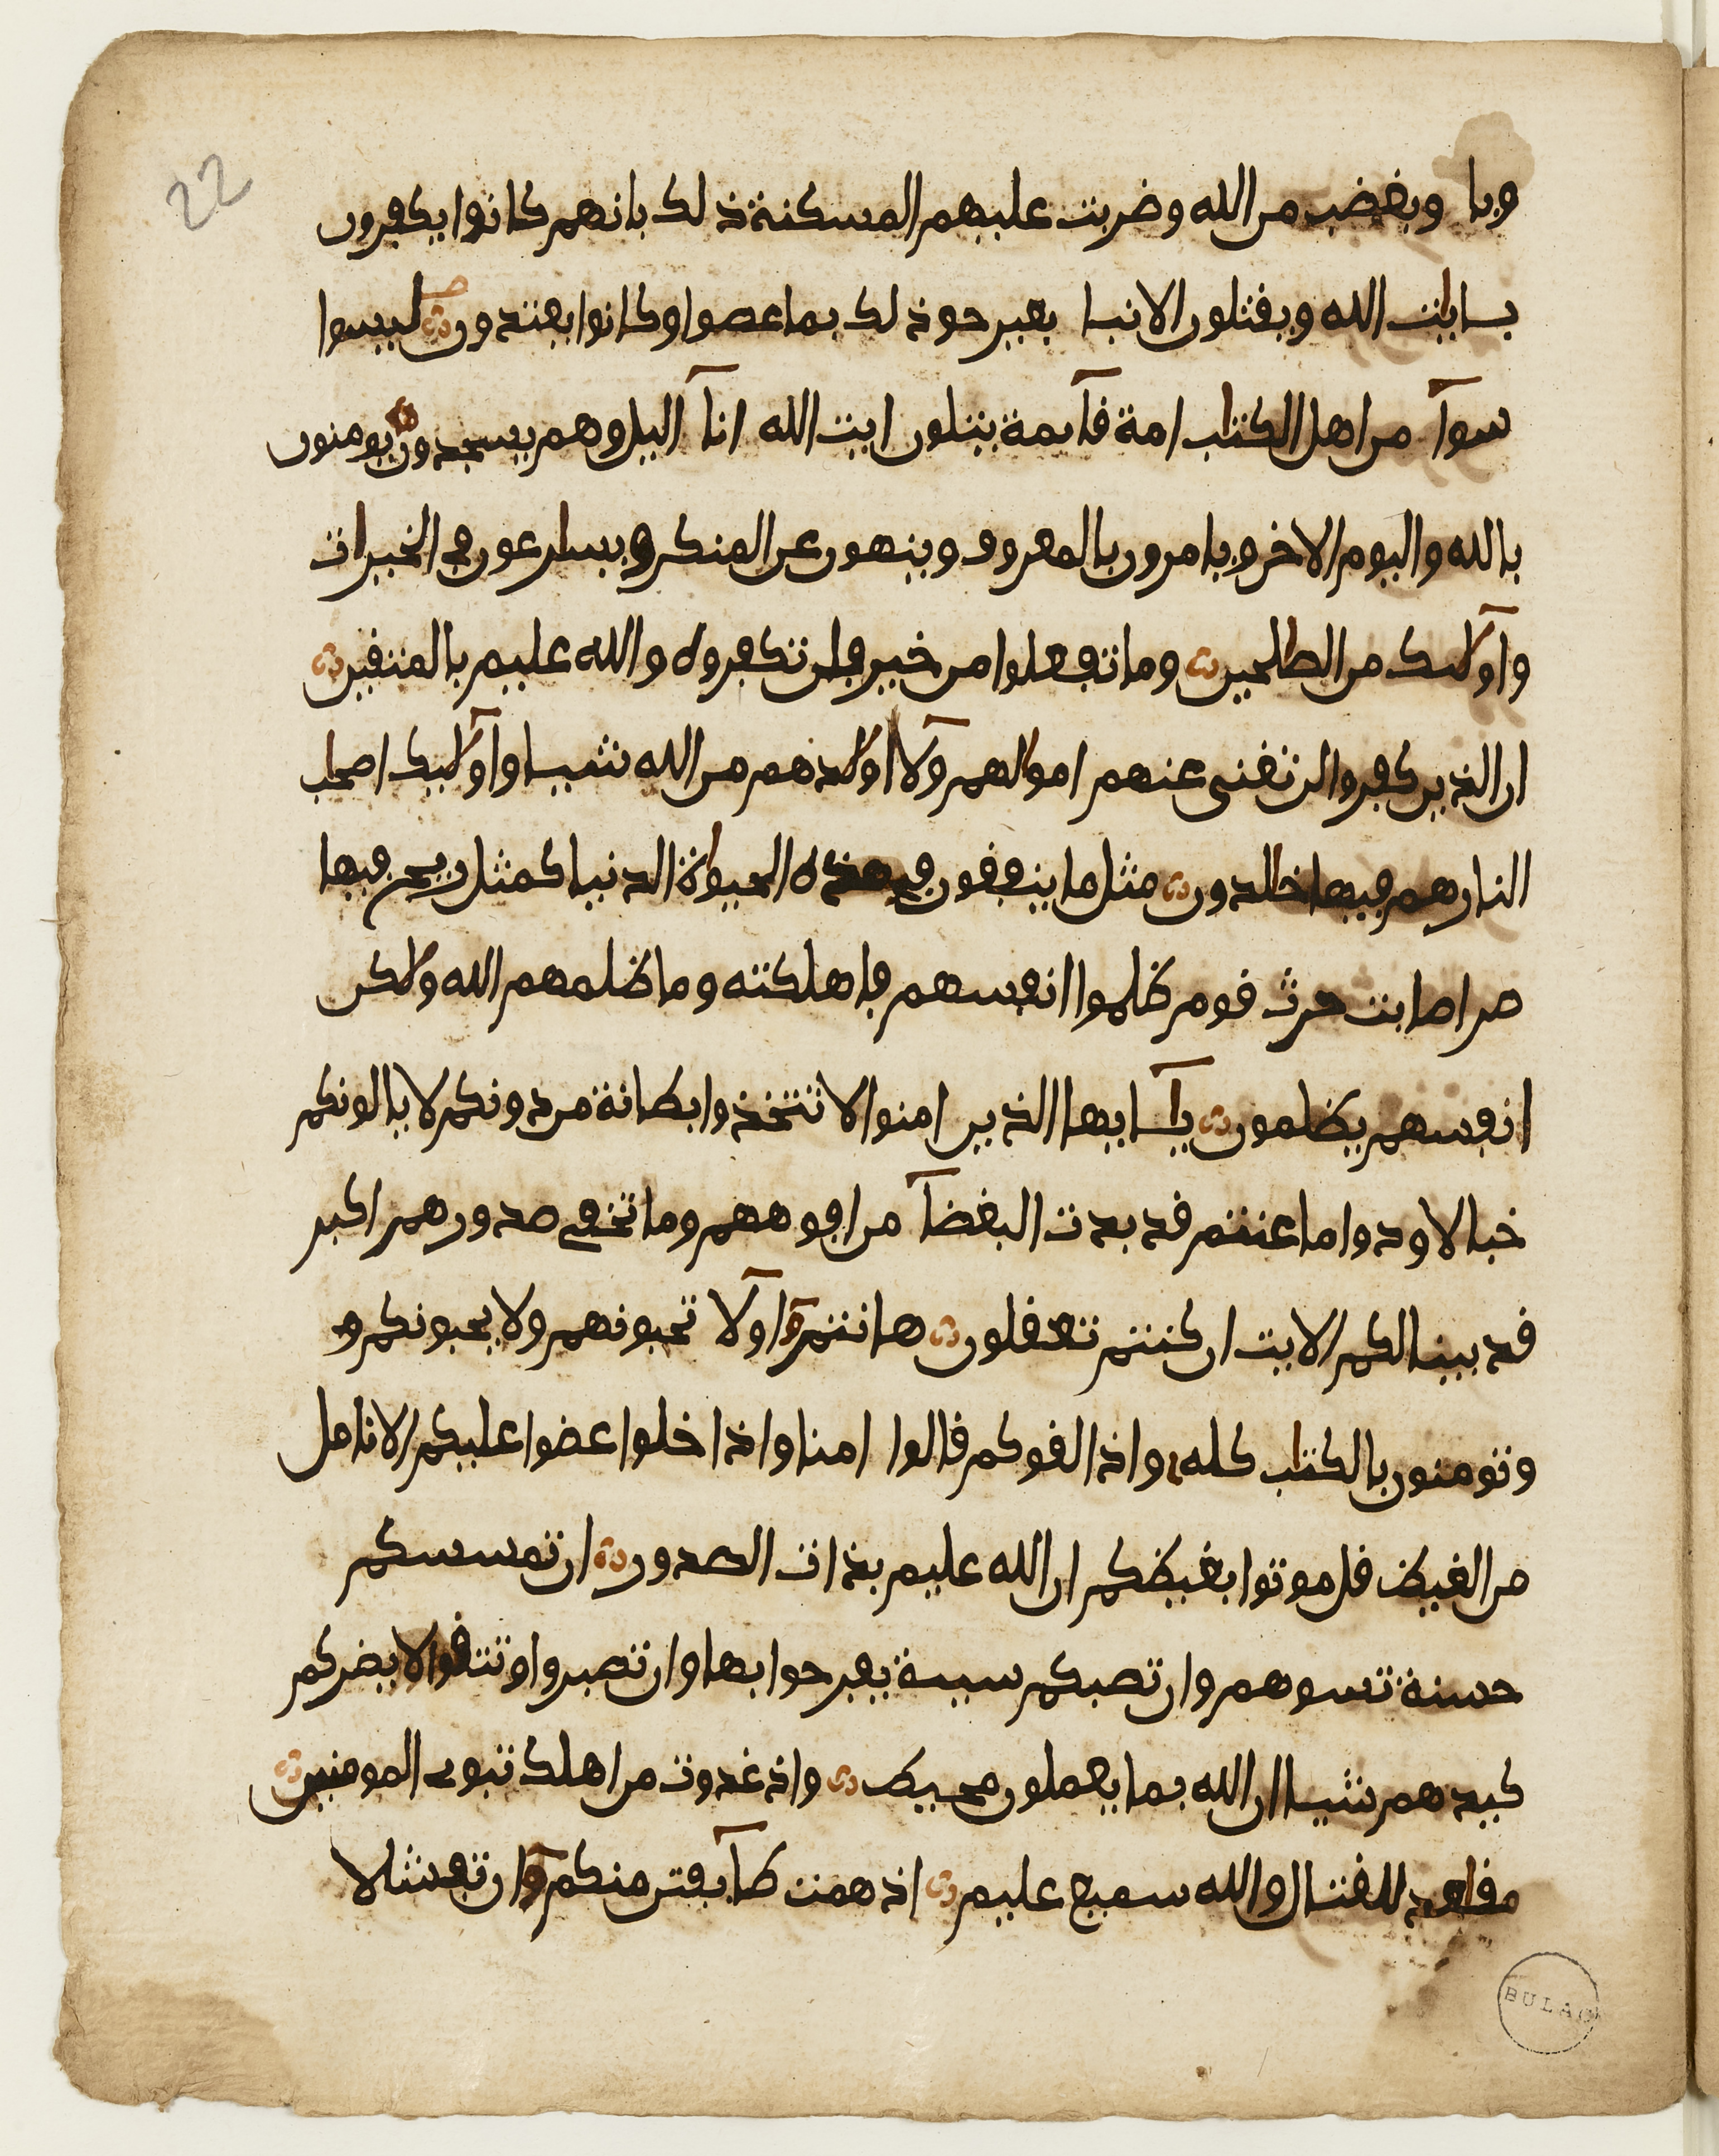 22
وبا وبغضب من الله وضربت عليهم المسكنة ذلك بانهم كانوا يكفرون
بـايت الله ويقتلون الانبيا بغير حق ذلك بما عصوا وكانوا يعتدون ليسوا
سوآ من اهل الكتب امة قآيمة يتلون ايت الله انآ اليل وهم يسجدون يومنون
بالله واليوم الاخر ويامرون بالمعروف وينهون عن المنكر ويسرعون في الخيرات
وآولىك من الصلحين وما تفعلوا من خير فلن تكفروه والله عليم بالمتقين
ان الذين كفروا لن تغنى عنهم امولهم وآلا اولدهم من الله شيـا وآولىيك اصحب
النار هم فيها خلدون مثل ما ينفقون في هذه الحيوة الدنيا كمثل ريح فيها
صر اصابت حرث قوم ظلموا انفسهم فاهلكته وما ظلمهم الله ولكن
انفسهم يظلمون يـآيها الذين امنوا لا تتخذوا بطانة من دونكم لا يالونكم
خبالا ودوا ما عنتم قد بدت البغضآ من افوههم وما تخفي صدورهم اكبر
قد بينا لكم الايت ان كنتم تعقلون هانتمو اولآ تحبونهم ولا يحبونكم و
وتومنون بالكتب كله واذا لقوكم قالوا امنا واذا خلوا عضوا عليكم الانامل
من الغيظ قل موتوا بغيظكم ان الله عليم بذات الصدور ان تمسسكم
حسنة تسوهم وان تصبكم سيـة يفرحوا بها وان تصبروا وتتقوا لا يضركم
كيدهم شيـا ان الله بما يعملون محيط واذ غدوت من اهلك تبوى المومنين
مقعد للقتال والله سميع عليم اذ همت طآيفتن منكمو ان تفشلا
BULAC